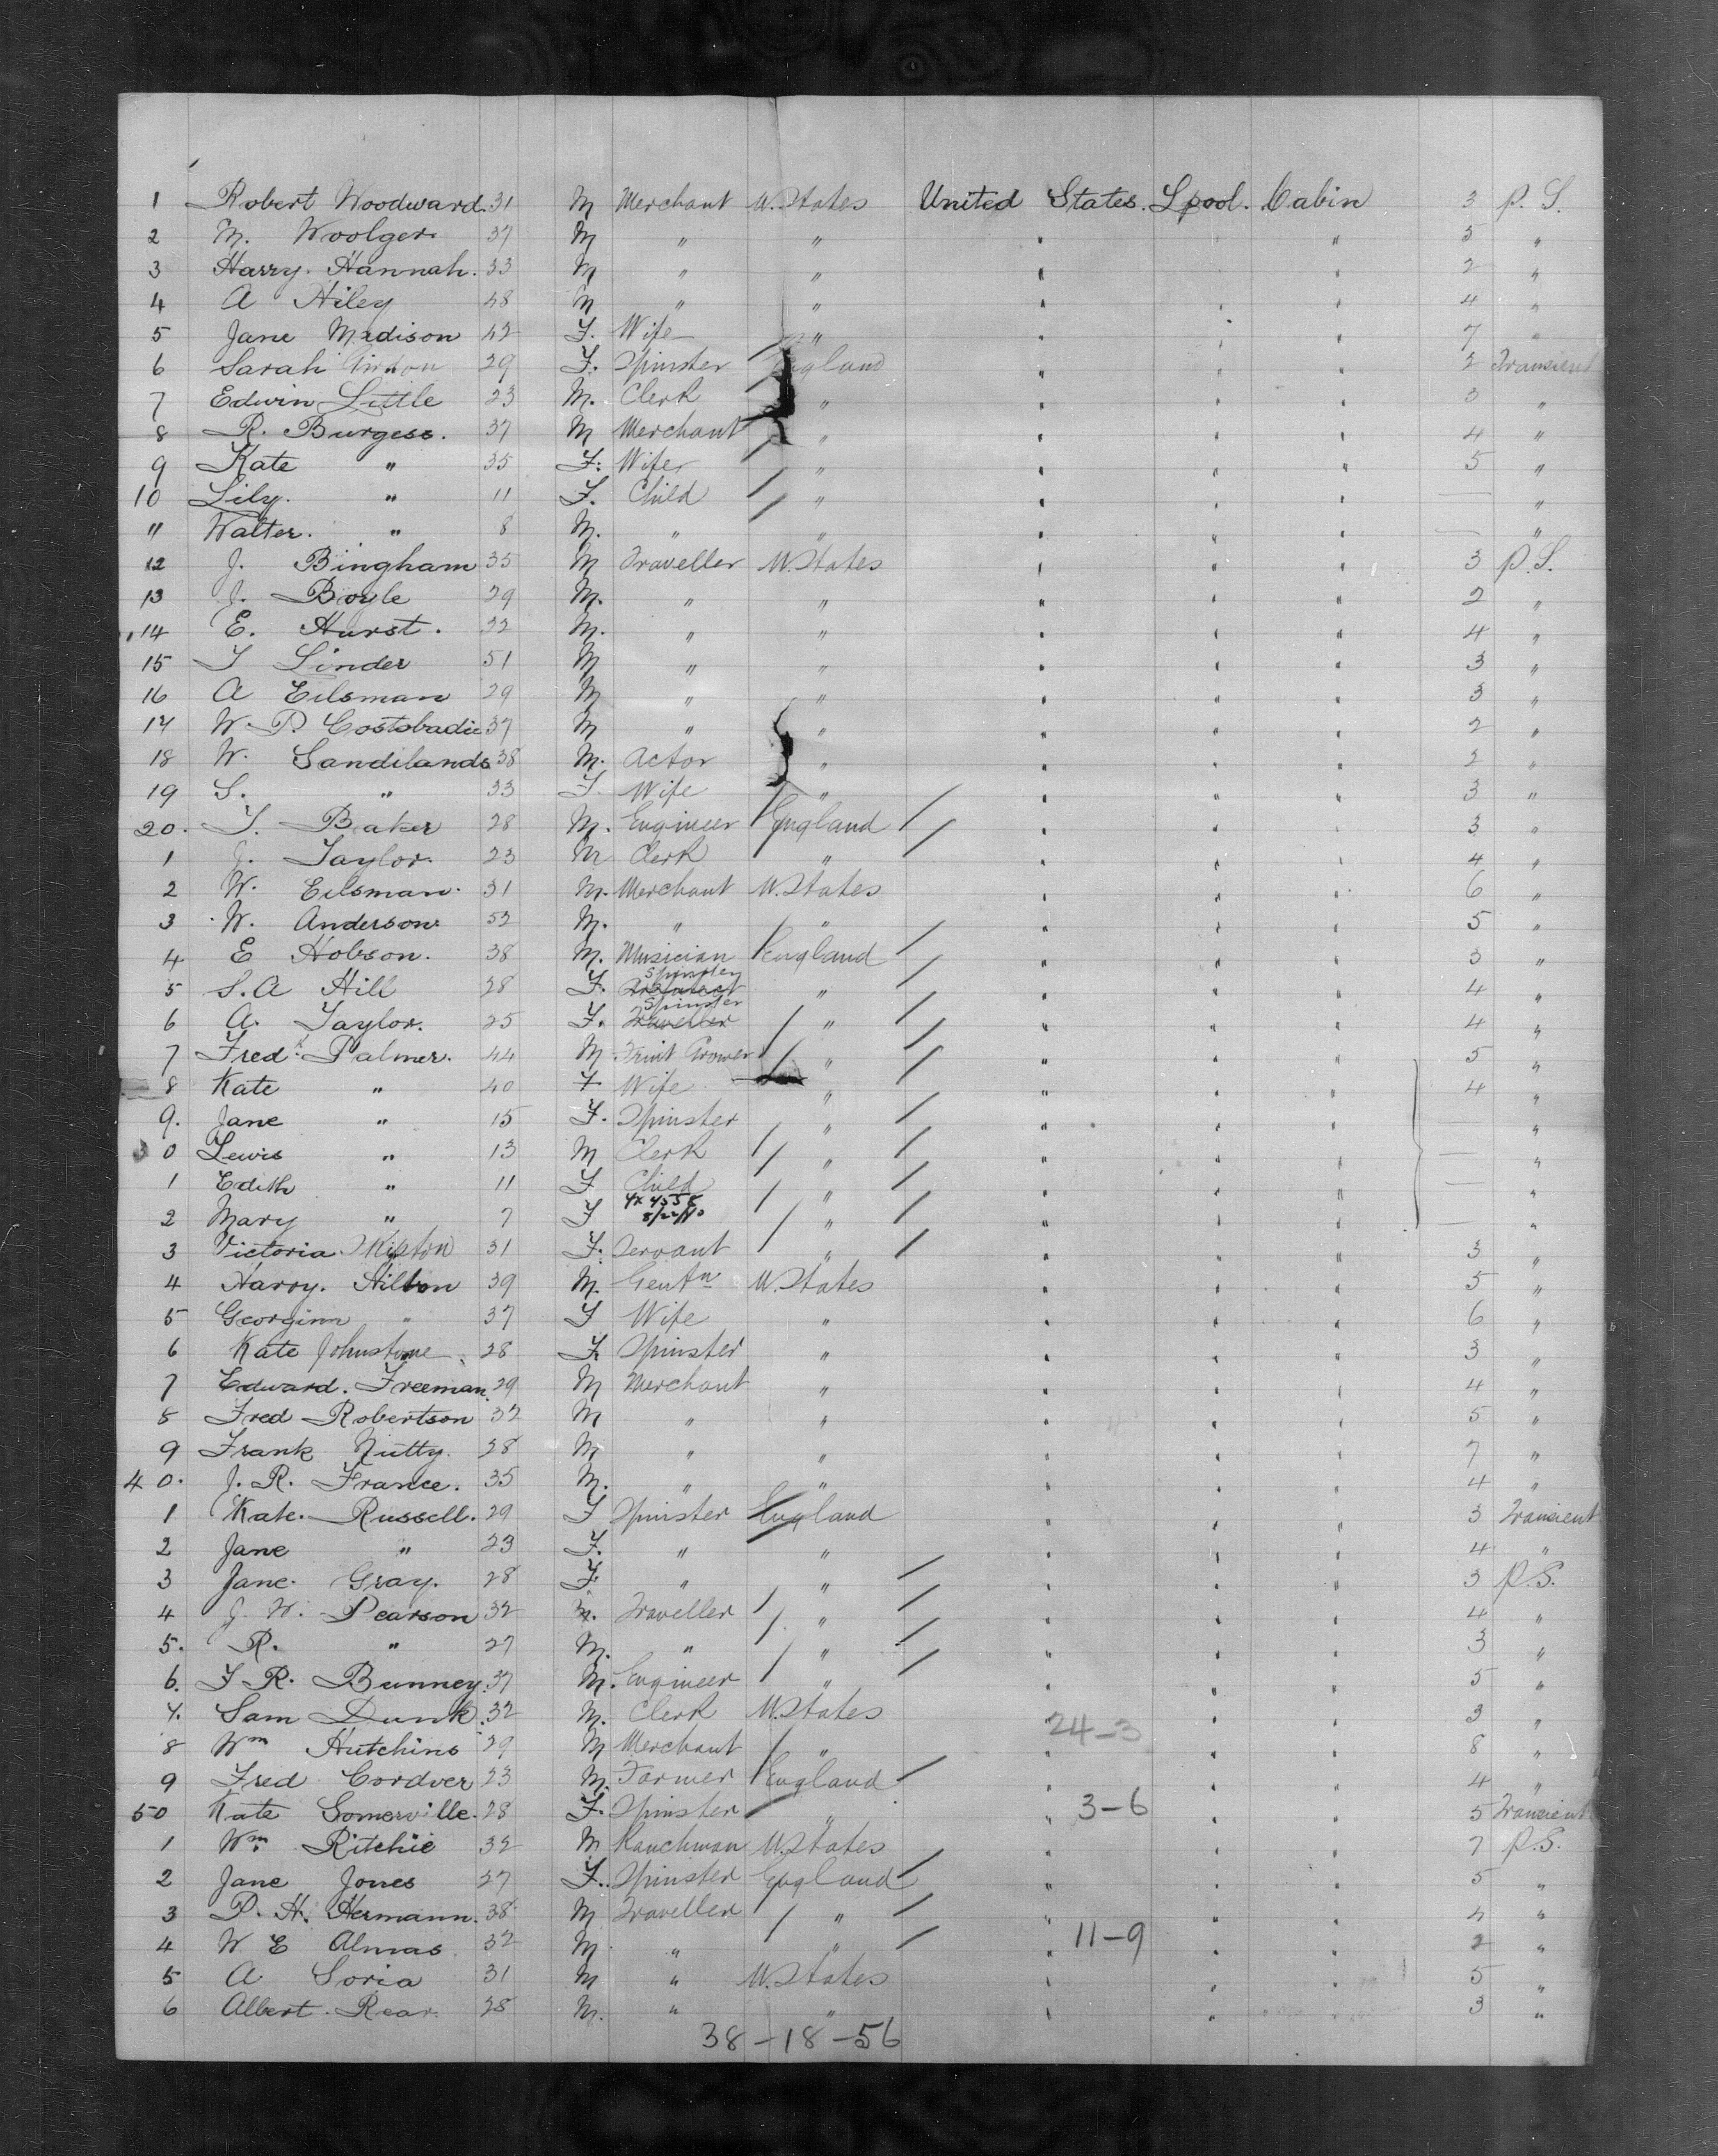 1 Robert Woodward. 31 M Merchant U. States United States. Lpool. Cabin 3 P. S.
2 M. Woolger 37 M " " " " " 5 "
3 Harry. Hannah. 33 M " " " " " 2 "
4 A Hiley 48 M " " " " " 4 "
5 Jane Madison 42 F. Wife " " " " 7 "
6 Sarah 29 F. Spinster England " " " 2 Transient
7 Edwin Little 23 M. Clerk " " " " 3 "
8 R. Burgess. 37 M Merchant " " " " 4 "
9 Kate " 35 F. Wife " " " " 5 "
10 Lily. " 11 F. Child " " " " — "
11 Walter. " 8 M. " " " " " — "
12 J. Bingham 35 M Traveller U. States " " " 3 P. S.
13 J. Boyle 29 M. " " " " " 2 "
14 E. Hurst. 32 M. " " " " " 4 "
15 T Linder 51 M " " " " " 3 "
16 A Eilsman 29 M " " " " " 3 "
17 W. P. Costobadie 37 M " " " " " 2 "
18 W. Sandilands 38 M. Actor " " " " 2 "
19 S. " 33 F. Wife " " " " 3 "
20. T. Baker 28 M. Engineer England " " " 3 "
1 J. Taylor. 23 M Clerk " " " " 4 "
2 W. Eilsman. 31 M. Merchant U. States " " " 6 "
3 W. Anderson 52 M. " " " " " 5 "
4 E Hobson. 38 M. Musician England " " " 3 "
5 S. A Hill 28 F. Spinster " " " " 4 "
6 A. Taylor. 25 F. Spinster Traveller " " " " 4 "
7 Fredk. Palmer. 44 M Fruit Grower " " " " 5 "
8 Kate " 40 F Wife " " " " 4 "
9. Jane " 15 F. Spinster " " " " — "
30 Lewis " 13 M Clerk " " " " — "
1 Edith " 11 F Child " " " " — "
2 Mary " 7 F 4x 4558 8/22/40 " " " " — "
3 Victoria 31 F. Servant " " " " 3 "
4 Harry. Hilton 39 M. Gentn U. States " " " 5 "
5 Georgina " 37 F Wife " " " " 6 "
6 Kate Johnstone 28 F. Spinster " " " " 3 "
7 Edward. Freeman. 29 M Merchant " " " " 4 "
8 Fred Robertson 32 M " " " " " 5 "
9 Frank Nutty. 28 M " " " " " 7 "
40. J. R. France. 35 M. " " " " " 4 "
1 Kate. Russell. 29 F Spinster England " " " 3 Transient
2 Jane " 23 F. " " " " " 4 "
3 Jane. Gray. 28 F. " " " " " 3 P. S.
4 J. W. Pearson 32 M. Traveller " " " " 4 "
5. R. " 27 M. " " " " " 3 "
6. T R. Bunney. 37 M. Engineer " " " " 5 "
7. Sam Dunk. 32 M. Clerk U. States " " " 3 "
24-3
8 Wm Hutchins 29 M Merchant " " " " 8 "
9 Fred Cordver 23 M. Farmer England " " " 4 "
50 Kate Somerville. 28 F. Spinster " " 3-6 " " 5 Transient
1 Wm. Ritchie 32 M Ranchman U. States " " " 7 P. S.
2 Jane Jones 27 F. Spinster England " " " 5 "
3 P. H. Hermann. 38 M Traveller " " " " 4 "
4 W E Almas 32 M " " " 11-9 " " 2 "
5 A Soria 31 M " U. States " " " 5 "
6 Albert. Rear. 28 M. " " " " " 3 "
38-18-56